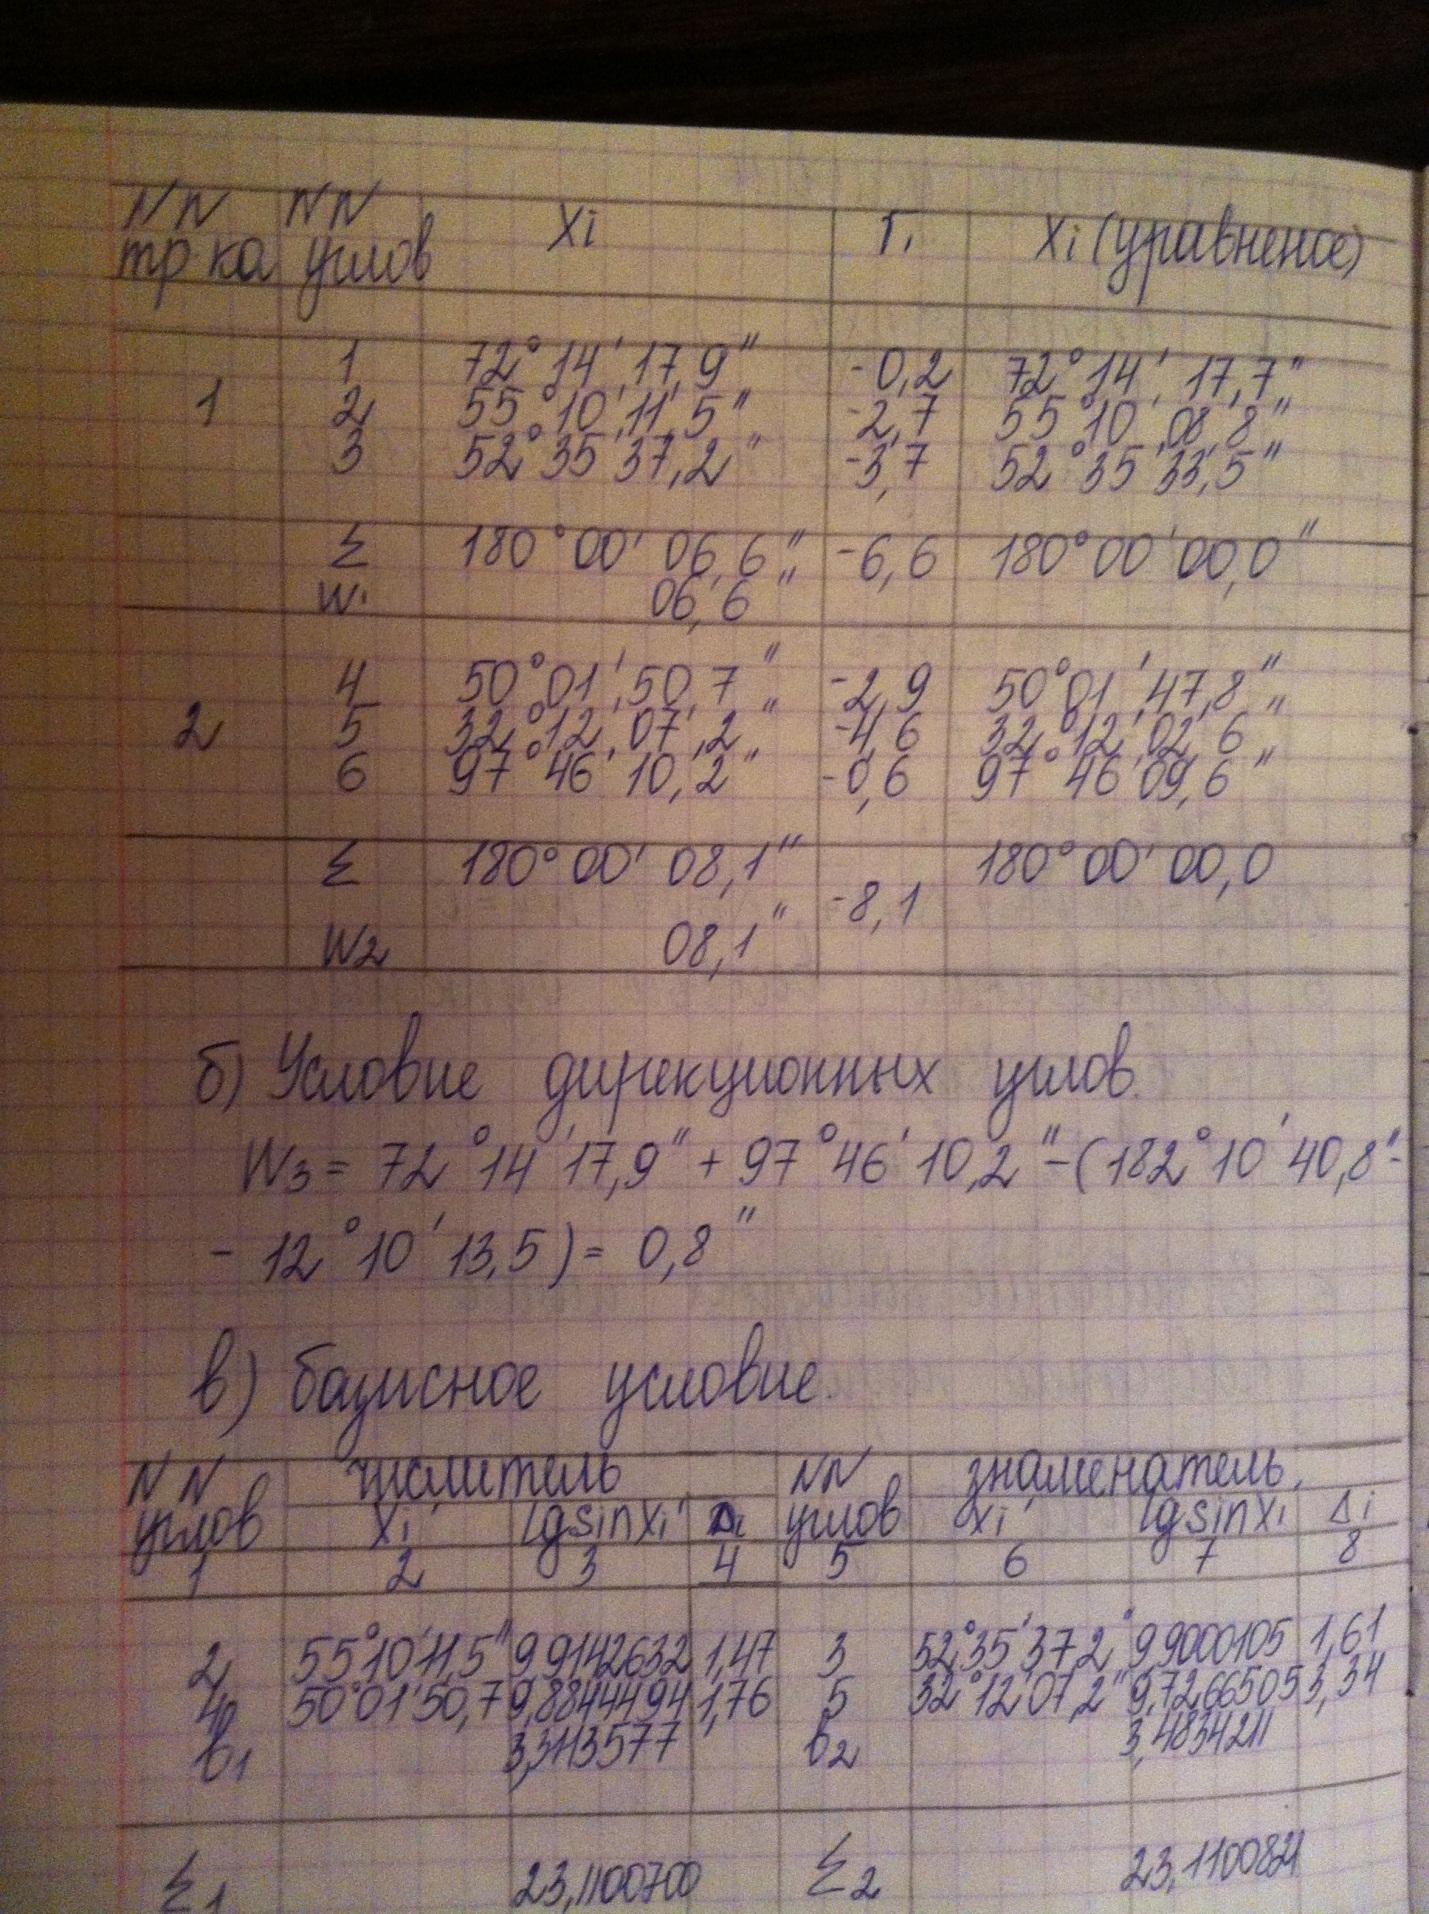 NN NN Xi Γi Xi (уравненое)
тр-ка углов
1 72°14'17,9" -0,2 72°14'17,7"
1 2 55°10'11,5" -2,7 55°10'08,8"
3 52°35'37,2" -3,7 52°35'33,5"
Σ 180°00'06,6" -6,6 180°00'00,0"
W1 06,6"
4 50°01'50,7" -2,9 50°01'47,8"
2 5 32°12'07,2" -4,6 32°12'02,6"
6 97°46'10,2" -0,6 97°46'09,6"
Σ 180°00'08,1" 180°00'00,0
-8,1
W2 08,1"
б) Условие дирекционных углов.
W3 = 72°14'17,9" + 97°46'10,2" - (182°10'40,8" -
- 12°10'13,5) = 0,8"
в) базисное условие.
NN числитель NN знаменатель.
углов Xi lgsinXi Δi углов Xi lgsinXi Δi
1 2 3 4 5 6 7 8
2 55°10'11,5" 9,9142632 1,47 3 52°35'37,2" 9,9000105 1,61
4 50°01'50,7 9,8844494 1,76 5 32°12'07,2" 9,7266505 3,34
b1 3,3113577 b2 3,4834211
Σ1 23,1100700 Σ2 23,1100821